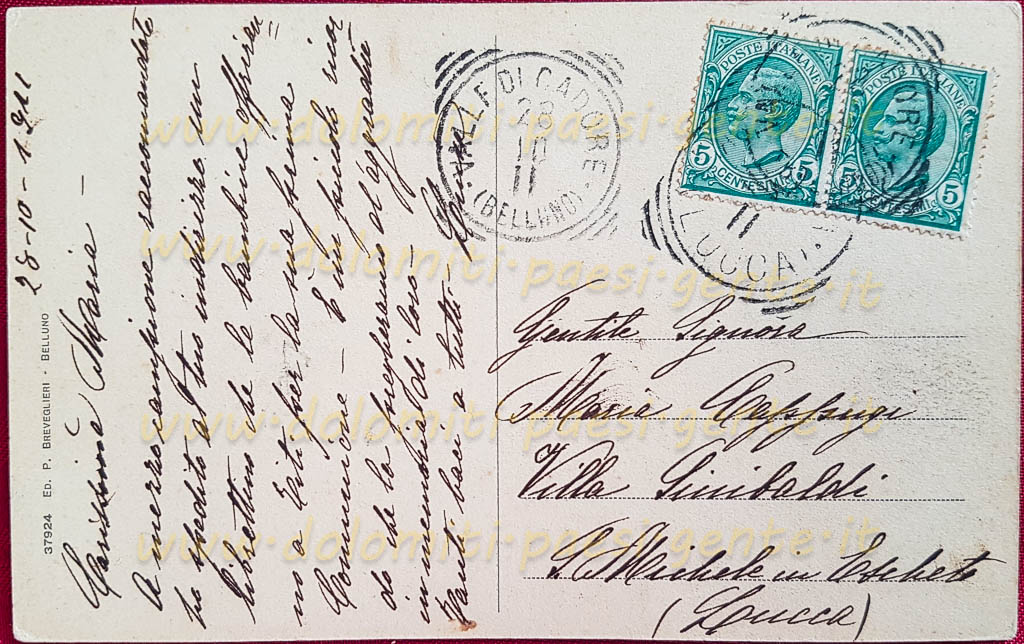 28-10-1911
Carissima Maria -
A mezzo campione raccomandato
ho spedito al tuo indirizzo un
librettino che le bambine offriran
no a Titi per la sua prima
Comunione - E un piccolo ricor
do che la pregheranno di aggradire
in memoria di loro
Tanti baci a tutti
37924 ED. P. BREVEGLIERI - BELLUNO
VALLE DI CADORE
28
10
11
(BELLUNO)
POSTE ITALIANE
5 CENTESIMI 5
POSTE ITALIANE
5 CENTESIMI 5
11
LUCCA
Gentile Signora
Maria
Villa Sinibaldi
S. Michele in Escheto
(Lucca)
www·dolomiti·paesi·gente·it
www·dolomiti·paesi·gente·it
www·dolomiti·paesi·gente·it
www·dolomiti·paesi·gente·it